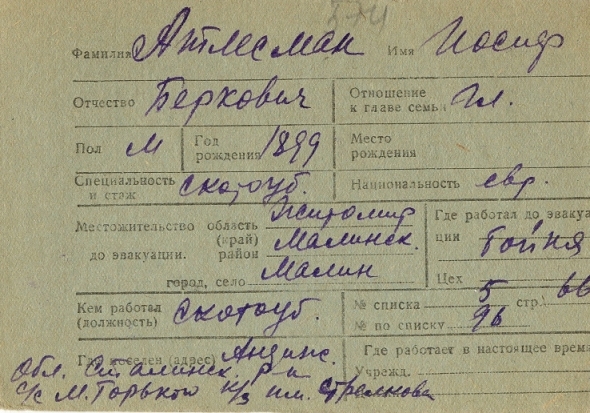 574
Фамилия Атлесман Имя Иосиф
Отчество Беркович Отношение к главе семьи Гл.
Пол М Год рождения 1899 Место рождения
Специальность и стаж скотоуб. Национальность евр.
Местожительство область Житомир Где работал до эвакуа-
(край)
до эвакуации. район Малинск. ции бойня
город, село Малин Цех
Кем работал (должность) скотоуб. № списка 5 стр. 66
№ по списку 96
Где поселен (адрес) Андинс. Где работает в настоящее время
Обл. Сталинск. р-н Учрежд.
с/с М. Горького к/з им. Стрелкова